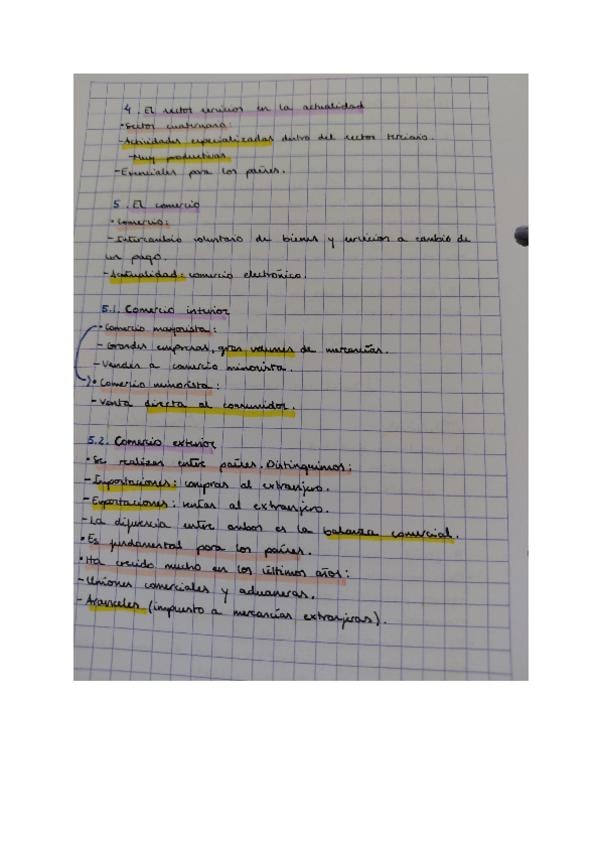 4. El sector servicios en la actualidad
• Sector cuaternario:
- Actividades especializadas dentro del sector terciario.
- Muy productivas.
- Esenciales para los países.
5. El comercio
• Comercio:
- Intercambio voluntario de bienes y servicios a cambio de
un pago.
- Actualidad: comercio electrónico.
5.1. Comercio interior
• Comercio mayorista:
- Grandes empresas, gran volumen de mercancías.
- Venden a comercio minorista.
• Comercio minorista:
- Venta directa al consumidor.
5.2. Comercio exterior
• Se realizan entre países. Distinguimos:
- Importaciones: compras al extranjero.
- Exportaciones: ventas al extranjero.
- La diferencia entre ambos es la balanza comercial.
• Es fundamental para los países.
• Ha crecido mucho en los últimos años:
- Uniones comerciales y aduaneras.
- Aranceles (impuesto a mercancías extranjeras).